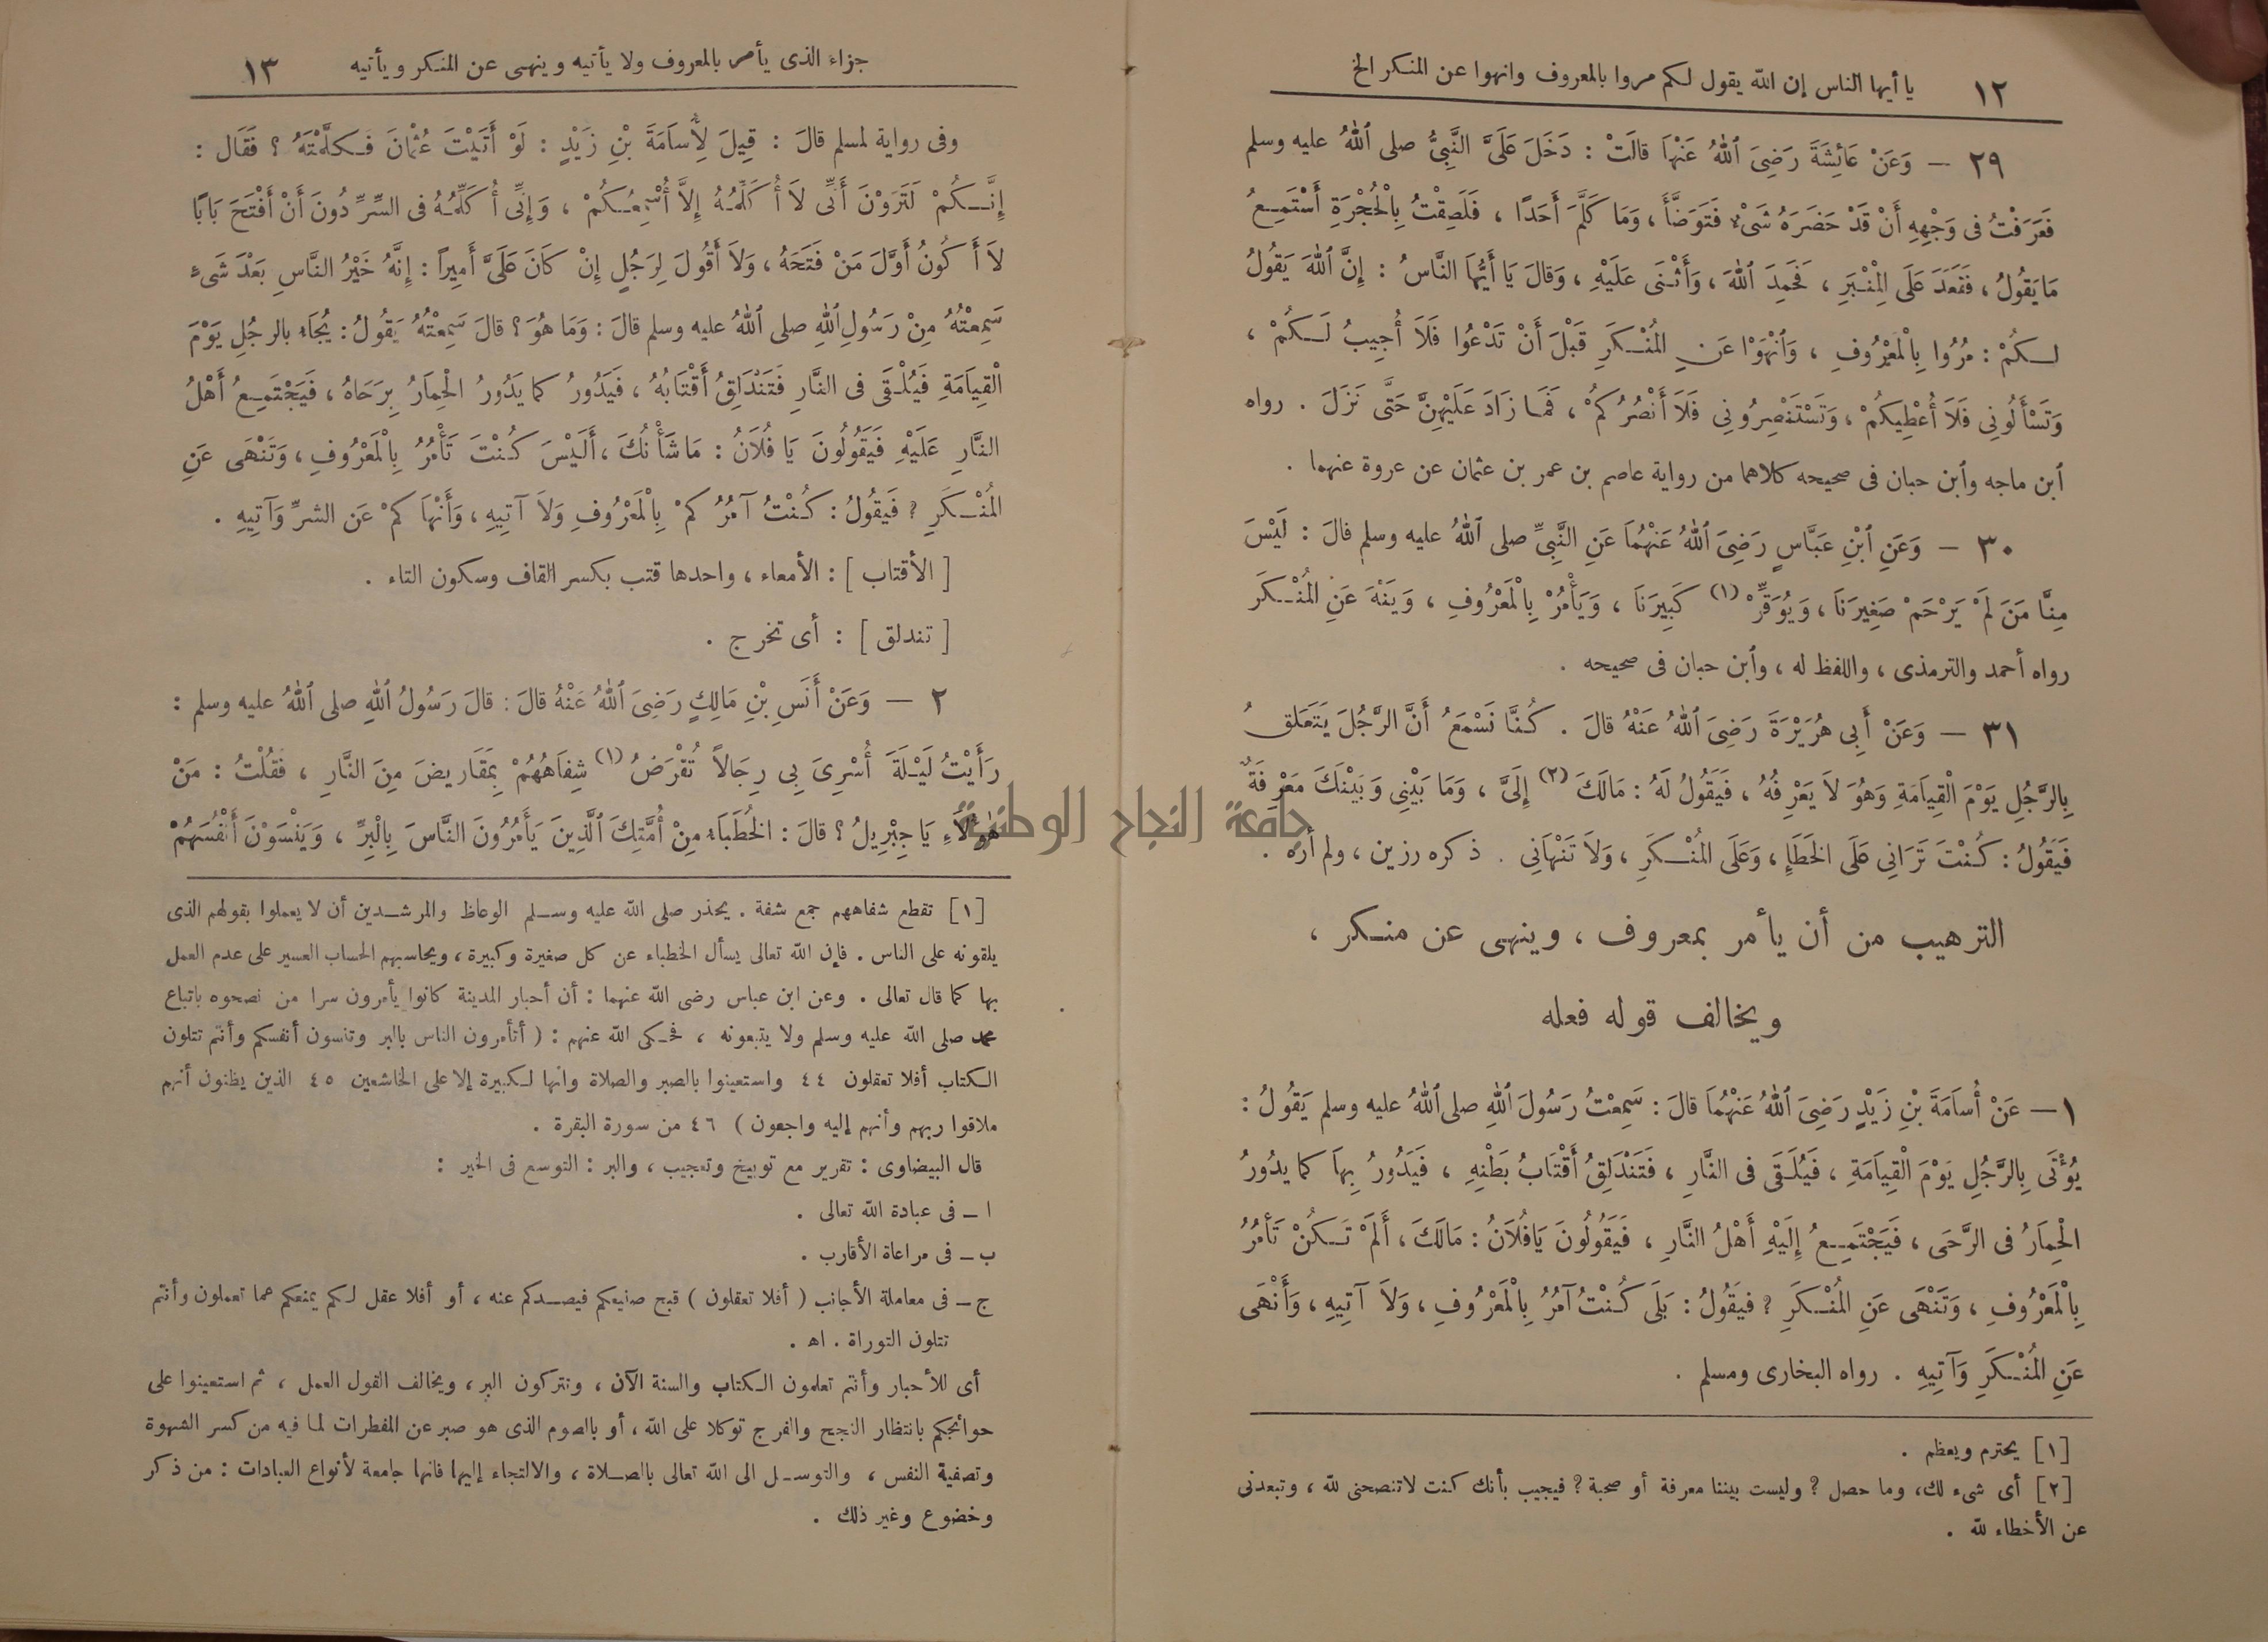 ١٢ يا أيها الناس إن الله يقول لكم مروا بالمعروف وانهوا عن المنكر الخ
٢٩ — وَعَنْ عَائِشَةَ رَضِىَ ٱللهُ عَنْهَا قالَتْ : دَخَلَ عَلَىَّ النَّبِىُّ صلى ٱللهُ عليه وسلم
فَعَرَفْتُ فى وَجْهِهِ أَنْ قَدْ حَضَرَهُ شَىْءٌ فَتَوَضَّأَ ، وَمَا كَلَّمَ أَحَدًا ، فَلَصِقْتُ بِالْحُجْرَةِ أَسْتَمِعُ
مَا يَقُولُ ، فَقَعَدَ عَلَى الْمِنْبَرِ ، فَحَمِدَ ٱللهَ ، وَأَثْنَى عَلَيْهِ ، وَقالَ يَا أَيُّهَا النَّاسُ : إِنَّ ٱللهَ يَقُولُ
لَكُمْ : مُرُوا بِالْمَعْرُوفِ ، وَٱنْهَوْا عَنِ الْمُنْكَرِ قَبْلَ أَنْ تَدْعُوا فَلاَ أُجِيبُ لَكُمْ ،
وَتَسْأَلُونِى فَلاَ أُعْطِيكُمْ ، وَتَسْتَنْصِرُونِى فَلاَ أَنْصُرُكُمْ ، فَمَا زَادَ عَلَيْهِنَّ حَتَّى نَزَلَ . رواه
ٱبن ماجه وٱبن حبان فى صحيحه كلاهما من رواية عاصم بن عمر بن عثمان عن عروة عنهما .
٣٠ — وَعَنِ ٱبْنِ عَبَّاسٍ رَضِىَ ٱللهُ عَنْهُمَا عَنِ النَّبِىِّ صلى ٱللهُ عليه وسلم قالَ : لَيْسَ
مِنَّا مَنْ لَمْ يَرْحَمْ صَغِيرَنَا ، وَيُوَقِّرْ (١) كَبِيرَنَا ، وَيَأْمُرْ بِالْمَعْرُوفِ ، وَيَنْهَ عَنِ الْمُنْكَرِ
رواه أحمد والترمذى ، واللفظ له ، وٱبن حبان فى صحيحه .
٣١ — وَعَنْ أَبِى هُرَيْرَةَ رَضِىَ ٱللهُ عَنْهُ قالَ . كُنَّا نَسْمَعُ أَنَّ الرَّجُلَ يَتَعَلقُ
بِالرَّجُلِ يَوْمَ الْقِيَامَةِ وَهُوَ لاَ يَعْرِفُهُ ، فَيَقُولُ لَهُ : مَالَكَ (٢) إِلَىَّ ، وَمَا بَيْنِى وَبَيْنَكَ مَعْرِفَةٌ
فَيَقُولُ : كُنْتَ تَرَانِى عَلَى الْخَطَإِ ، وَعَلَى الْمُنْكَرِ ، وَلاَ تَنْهَانِى . ذكره رزين ، ولم أره .
الترهيب من أن يأمر بمعروف ، وينهى عن منكر ،
ويخالف قوله فعله
١ — عَنْ أُسَامَةَ بْنِ زَيْدٍ رَضِىَ ٱللهُ عَنْهُمَا قالَ : سَمِعْتُ رَسُولَ ٱللهِ صلى ٱللهُ عليه وسلم يَقُولُ :
يُؤْتَى بِالرَّجُلِ يَوْمَ الْقِيَامَةِ ، فَيُلْقَى فى النَّارِ ، فَتَنْدَلِقُ أَقْتَابُ بَطْنِهِ ، فَيَدُورُ بِهَا كما يدُورُ
الْحِمَارُ فى الرَّحَى ، فَيَجْتَمِعُ إِلَيْهِ أَهْلُ النَّارِ ، فَيَقُولُونَ يَا فُلاَنُ : مَالَكَ ، أَلَمْ تَكُنْ تَأْمُرُ
بِالْمَعْرُوفِ ، وَتَنْهَى عَنِ الْمُنْكَرِ ؟ فيَقُولُ : بَلَى كُنْتُ آمُرُ بِالْمَعْرُوفِ ، وَلاَ آتِيهِ ، وَأَنْهَى
عَنِ الْمُنْكَرِ وَآتِيهِ . رواه البخارى ومسلم .
[١] يحترم ويعظم .
[٢] أى شىء لك، وما حصل ؟ وليست بيننا معرفة أو صحبة ؟ فيجيب بأنك كنت لا تنصحنى لله ، وتبعدنى
عن الأخطاء لله .
جزاء الذى يأمر بالمعروف ولا يأتيه وينهى عن المنكر ويأتيه ١٣
وفى رواية لمسلم قالَ : قِيلَ لِأُسَامَةَ بْنِ زَيْدٍ : لَوْ أَتَيْتَ عُثْمَانَ فَكلَّمْتَهُ ؟ فَقَال :
إِنَّكُمْ لَتَرَوْنَ أَنِّى لاَ أُكَلِّمُهُ إِلاَّ أُسْمِعُكُمْ ، وَإِنِّى أُكَلِّمُهُ فى السِّرِّ دُونَ أَنْ أَفْتَحَ بَابًا
لاَ أَكُونُ أَوَّلَ مَنْ فَتَحَهُ ، وَلاَ أَقُولَ لِرَجُلٍ إِنْ كَانَ عَلَىَّ أَمِيراً : إِنَّهُ خَيْرُ النَّاسِ بَعْدَ شَىْءٍ
سَمِعْتُهُ مِنْ رَسُولِ ٱللهِ صلى ٱللهُ عليه وسلم قالَ : وَمَا هُوَ ؟ قالَ سَمِعْتُهُ يَقُولُ : يُجَاءُ بالرجُلِ يَوْمَ
الْقِيَامَةِ فَيُلْقَى فى النَّارِ فَتَنْدَلِقُ أَقْتَابُهُ ، فَيَدُورُ كما يَدُورُ الْحِمَارُ بِرَحَاهُ ، فَيَجْتَمِعُ أَهْلُ
النَّارِ عَلَيْهِ فَيَقُولُونَ يَا فُلاَنُ : مَا شَأْنُكَ ، أَلَيْسَ كُنْتَ تَأْمُرُ بِالْمَعْرُوفِ ، وَتَنْهَى عَنِ
الْمُنْكَرِ ؟ فَيَقُولُ : كُنْتُ آمُرُكمْ بِالْمَعْرُوفِ وَلاَ آتِيهِ ، وَأَنْهَاكمْ عَن الشرِّ وَآتِيهِ .
[ الأقتاب ] : الأمعاء ، واحدها قتب بكسر القاف وسكون التاء .
[ تندلق ] : أى تخرج .
٢ — وَعَنْ أَنَسِ بْنِ مَالِكٍ رَضِىَ ٱللهُ عَنْهُ قالَ : قالَ رَسُولُ ٱللهِ صلى ٱللهُ عليه وسلم :
رَأَيْتُ لَيْلَةَ أُسْرِىَ بِى رِجَالاً تُقْرَضُ (١) شِفَاهُهُمْ بِمَقَارِيضَ مِنَ النَّارِ ، فَقُلْتُ : مَنْ
هٰؤُلاَءِ يَا جِبْرِيلُ ؟ قالَ : الْخُطَبَاءُ مِنْ أُمَّتِكَ ٱلَّذِينَ يَأْمُرُونَ النَّاسَ بِالْبِرِّ ، وَيَنْسَوْنَ أَنْفُسَهُمْ
جامعة النجاح الوطنية
[١] تقطع شفاههم جمع شفة . يحذر صلى الله عليه وسلم الوعاظ والمرشدين أن لا يعملوا بقولهم الذى
يلقونه على الناس . فإن الله تعالى يسأل الخطباء عن كل صغيرة وكبيرة ، ويحاسبهم الحساب العسير على عدم العمل
بها كما قال تعالى . وعن ابن عباس رضى الله عنهما : أن أحبار المدينة كانوا يأمرون سرا من نصحوه باتباع
محمد صلى الله عليه وسلم ولا يتبعونه ، فحكى الله عنهم : ( أتأمرون الناس بالبر وتنسون أنفسكم وأنتم تتلون
الكتاب أفلا تعقلون ٤٤ واستعينوا بالصبر والصلاة وانها لكبيرة إلا على الخاشعين ٤٥ الذين يظنون أنهم
ملاقوا ربهم وأنهم إليه واجعون ) ٤٦ من سورة البقرة .
قال البيضاوى : تقرير مع توبيخ وتعجيب ، والبر : التوسع فى الخير :
ا — فى عبادة الله تعالى .
ب — فى مراعاة الأقارب .
ج — فى معاملة الأجانب ( أفلا تعقلون ) قبح صنيعكم فيصدكم عنه ، أو أفلا عقل لكم يمنعكم عما تعملون وأنتم
تتلون التوراة . اه .
أى للأحبار وأنتم تعلمون الكتاب والسنة الآن ، وتتركون البر ، ويخالف القول العمل ، ثم استعينوا على
حوائجكم بانتظار النجح والفرج توكلا على الله ، أو بالصوم الذى هو صبر عن المفطرات لما فيه من كسر الشهوة
وتصفية النفس ، والتوسل الى الله تعالى بالصلاة ، والالتجاء إليها فانها جامعة لأنواع العبادات : من ذكر
وخضوع وغير ذلك .